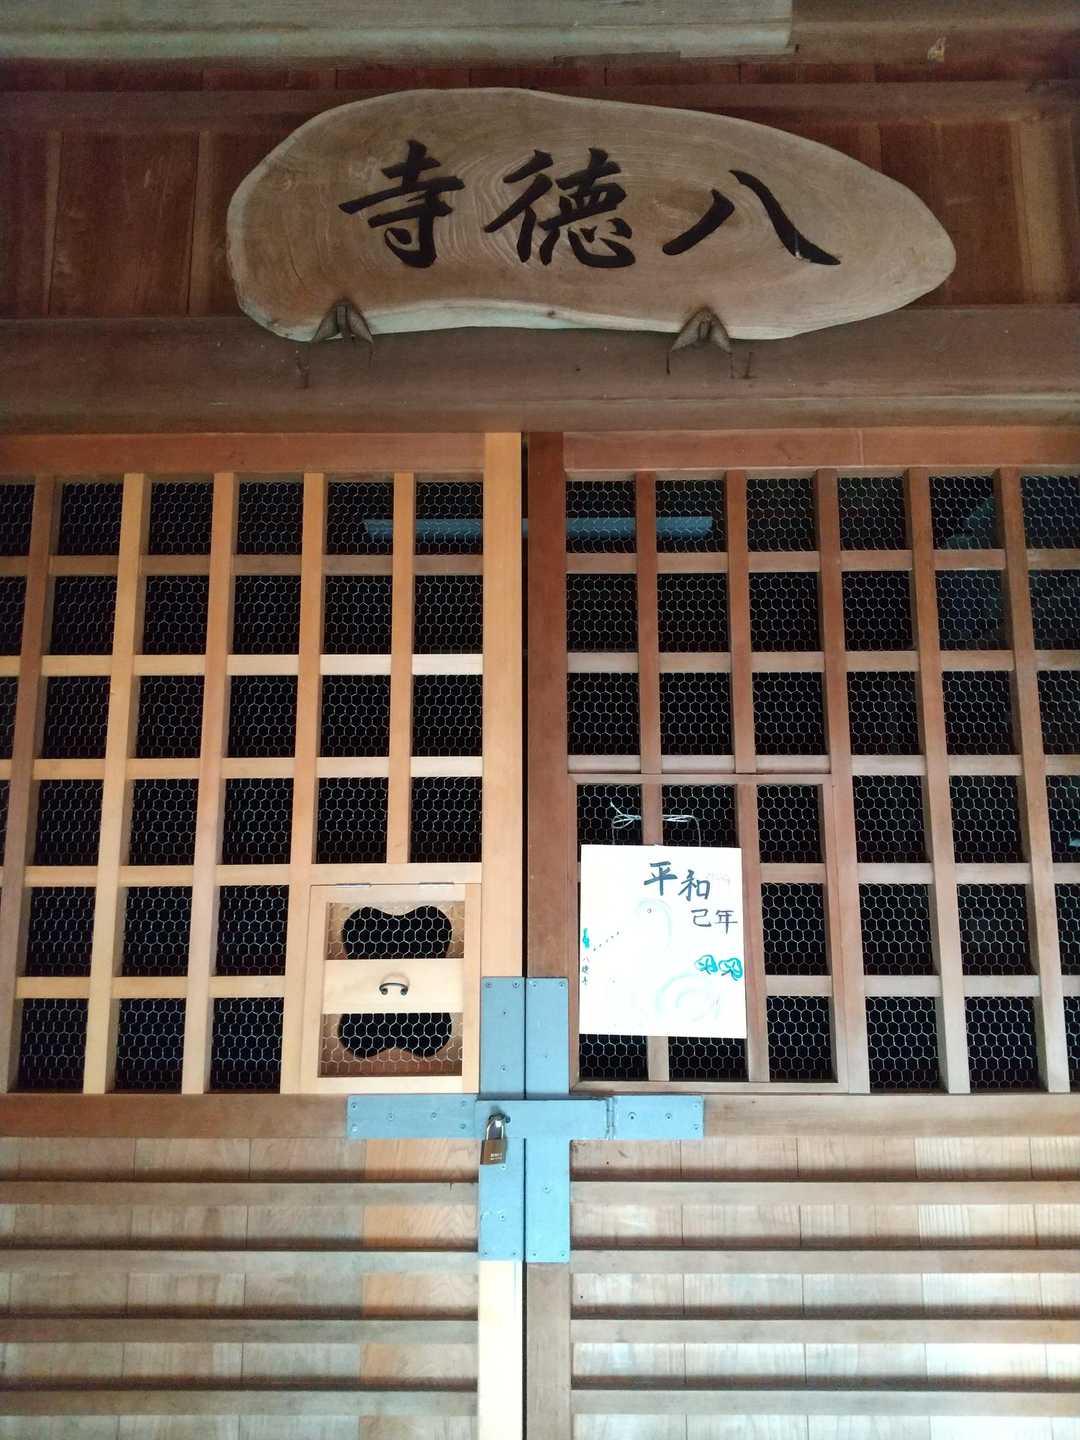 八徳寺
平和
己年
八徳寺